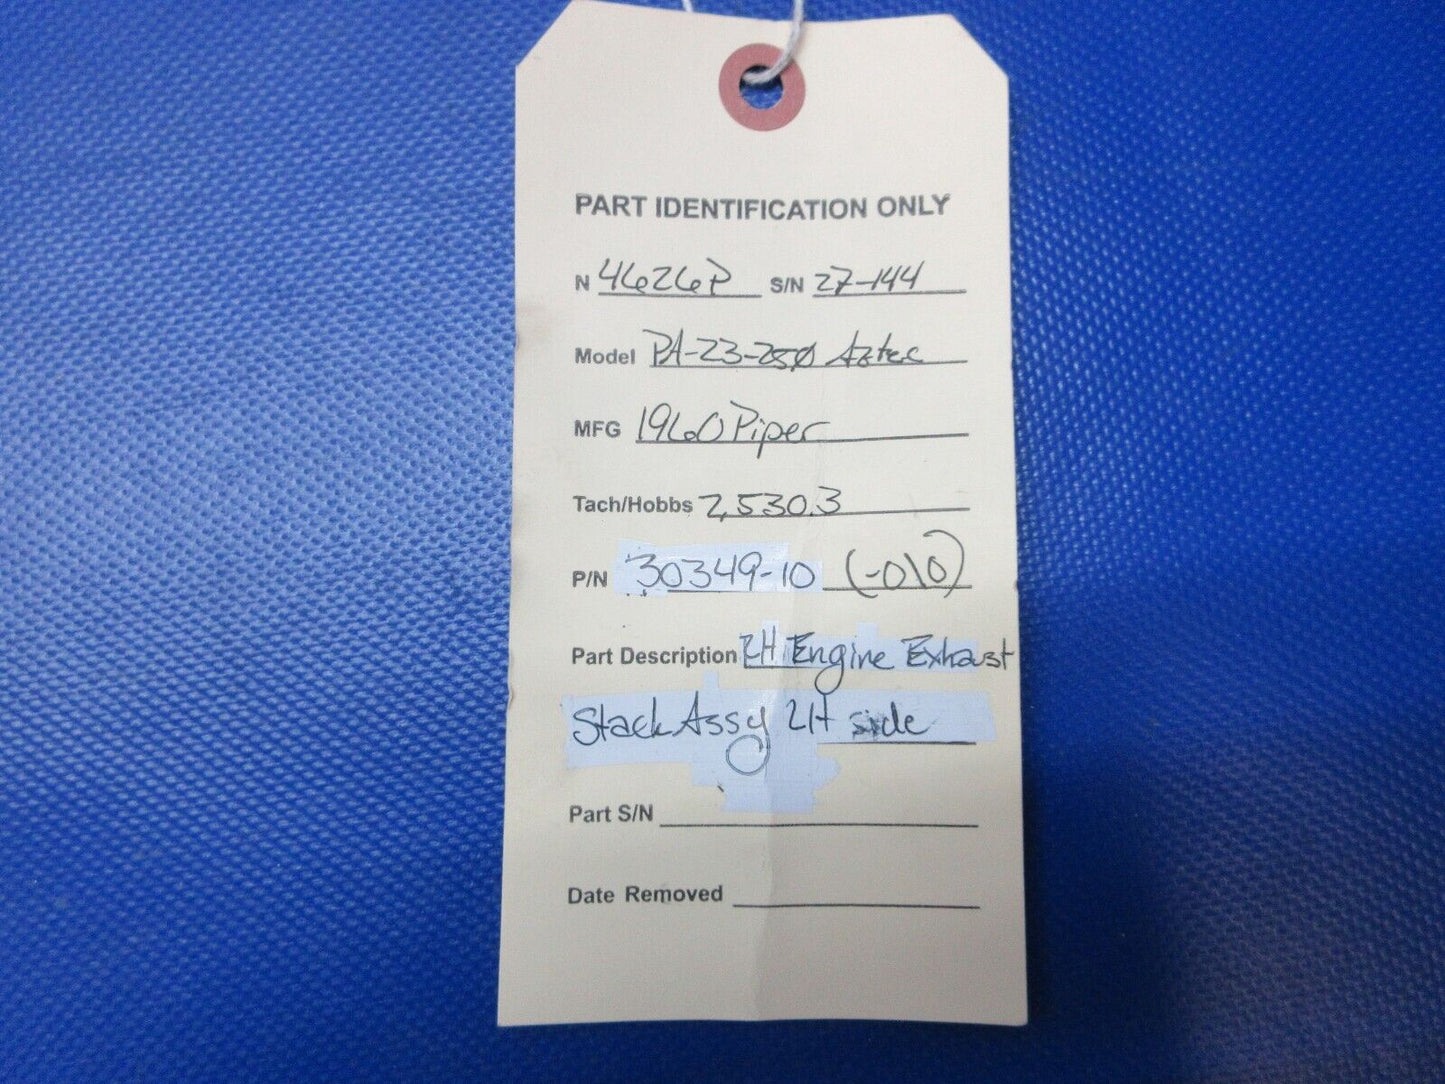 PART IDENTIFICATION ONLY
N 4626P S/N 27-144
Model PA-23-250 Aztec
MFG 1960 Piper
Tach/Hobbs 2,530.3
P/N 30349-10 (-010)
Part Description LH Engine Exhaust
Stack Assy LH side
Part S/N
Date Removed